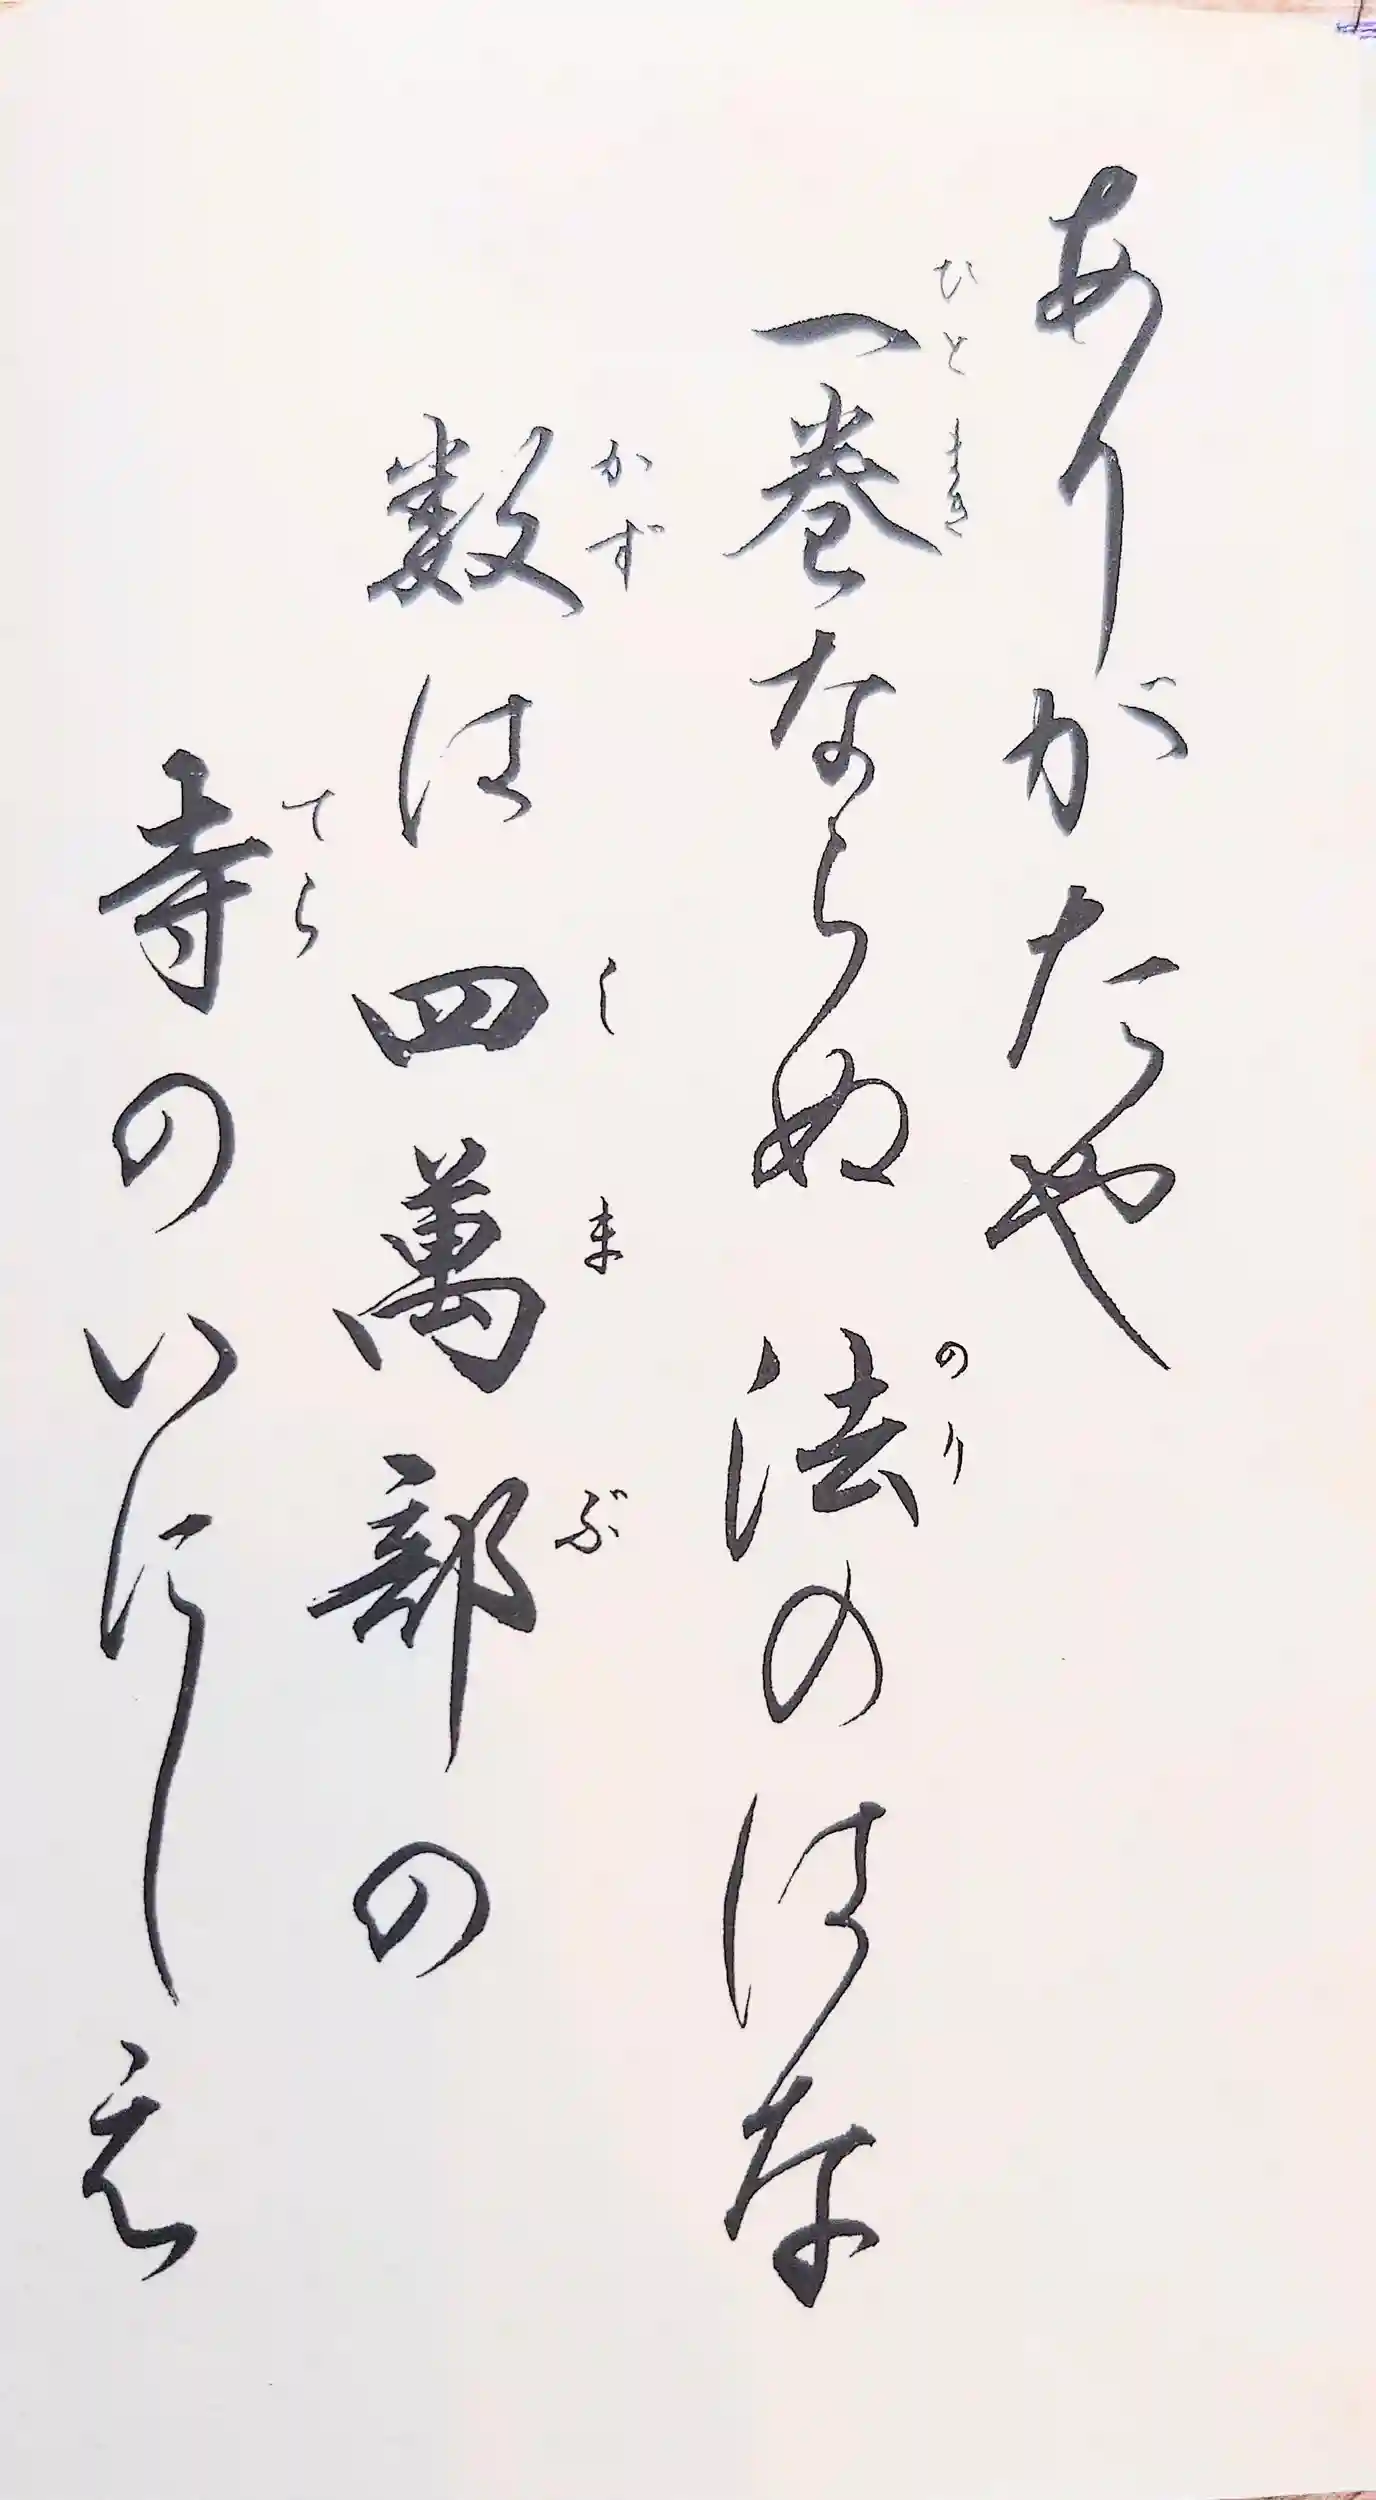 ありがたや
一巻ならぬ法のはな
ひとまき
のり
数は四萬部の
かず
しまぶ
寺のいにしえ
てら